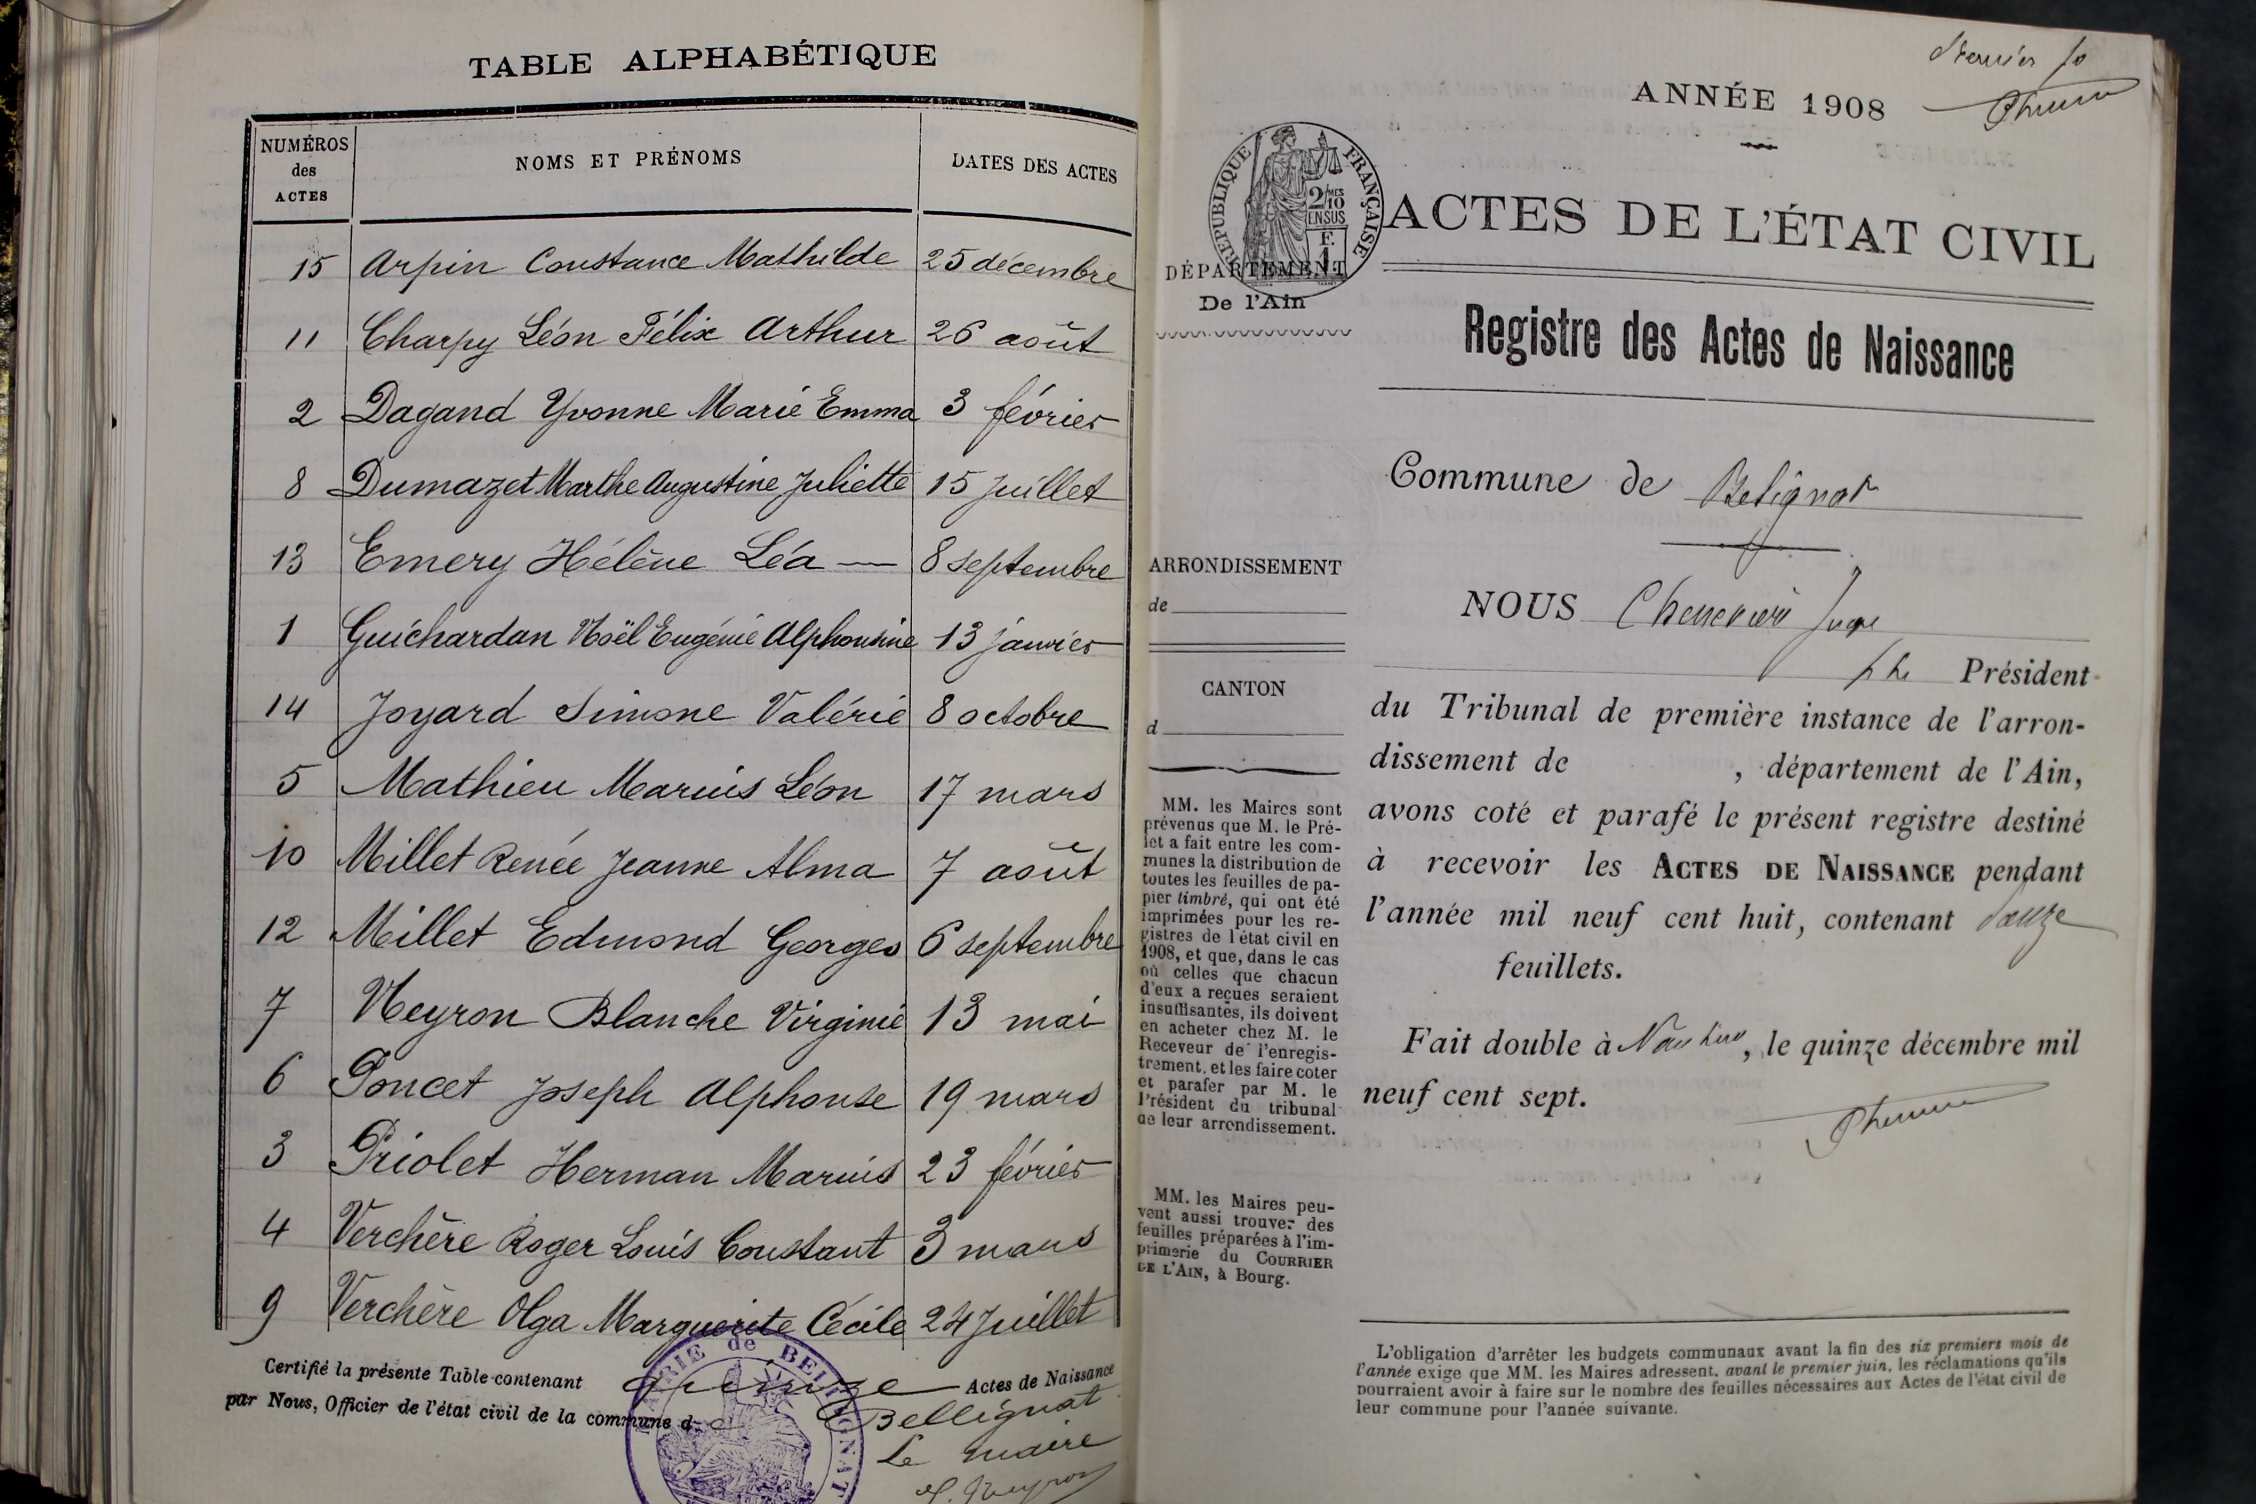 TABLE ALPHABÉTIQUE
NUMÉROS des ACTES NOMS ET PRÉNOMS DATES DES ACTES
15 Arpin Constance Mathilde 25 décembre
11 Charpy Léon Félix Arthur 26 août
2 Dagand Yvonne Marie Emma 3 février
8 Dumazet Marthe Augustine Juliette 15 Juillet
13 Emery Hélène Léa — 8 septembre
1 Guichardan Noël Eugénie Alphonsine 13 janvier
14 Joyard Simone Valérie 8 octobre
5 Mathieu Marius Léon 17 mars
10 Millet Renée Jeanne Alma 7 août
12 Millet Edmond Georges 6 septembre
7 Neyron Blanche Virginie 13 mai
6 Poncet Joseph Alphonse 19 mars
3 Priolet Herman Marius 23 février
4 Verchère Roger Louis Constant 3 mars
9 Verchère Olga Marguerite Cécile 24 Juillet
Certifié la présente Table contenant quinze Actes de Naissance
par Nous, Officier de l'état civil de la commune de Bellignat
Le maire
MAIRIE de BELLIGNAT
ANNÉE 1908
RÉPUBLIQUE FRANÇAISE
2/10 MES
EN SUS
F.
1
ACTES DE L'ÉTAT CIVIL
DÉPARTEMENT
De l'Ain
Registre des Actes de Naissance
Commune de Belignat
NOUS Juge
Président
du Tribunal de première instance de l'arron-
dissement de , département de l'Ain,
avons coté et parafé le présent registre destiné
à recevoir les ACTES DE NAISSANCE pendant
l'année mil neuf cent huit, contenant
feuillets.
Fait double à Nantua, le quinze décembre mil
neuf cent sept.
ARRONDISSEMENT
de
CANTON
d
MM. les Maires sont
prévenus que M. le Pré-
fet a fait entre les com-
munes la distribution de
toutes les feuilles de pa-
pier timbré, qui ont été
imprimées pour les re-
gistres de l'état civil en
1908, et que, dans le cas
où celles que chacun
d'eux a reçues seraient
insuffisantes, ils doivent
en acheter chez M. le
Receveur de l'enregis-
trement, et les faire coter
et parafer par M. le
Président du tribunal
de leur arrondissement.
MM. les Maires peu-
vent aussi trouver des
feuilles préparées à l'im-
primerie du COURRIER
DE L'AIN, à Bourg.
L'obligation d'arrêter les budgets communaux avant la fin des six premiers mois de
l'année exige que MM. les Maires adressent, avant le premier juin, les réclamations qu'ils
pourraient avoir à faire sur le nombre des feuilles nécessaires aux Actes de l'état civil de
leur commune pour l'année suivante.